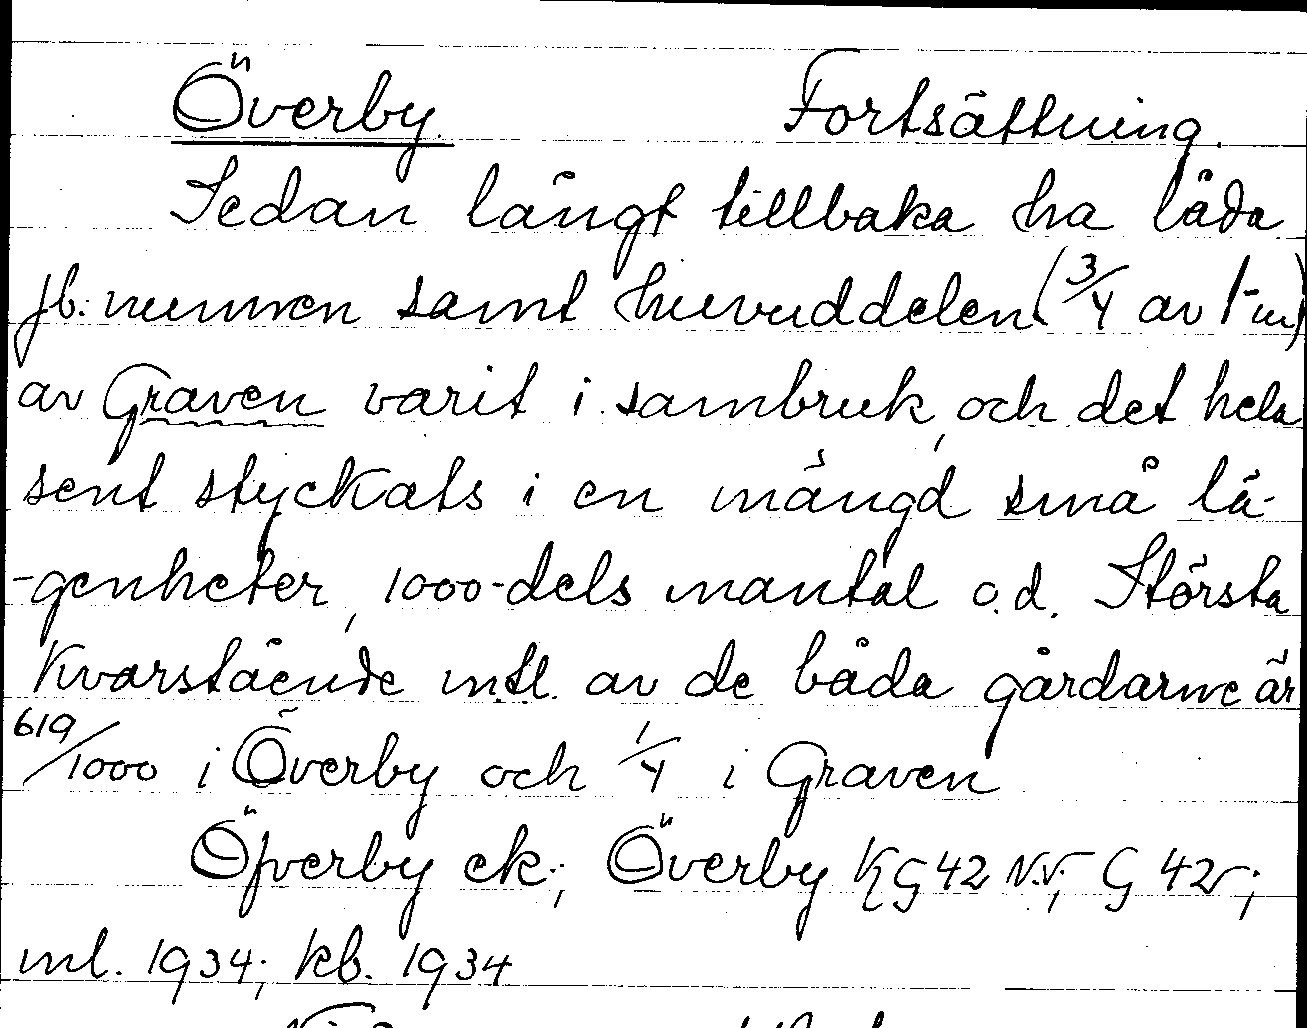 Överby. Fortsättning.
Sedan långt tillbaka ha båda
jb. numren samt huvuddelen (3/4 av 1 m)
av Graven varit i sambruk, och det hela
sent styckats i en mängd små lä-
-genheter, 1000-dels mantal o.d. Största
kvarstående mtl. av de båda gårdarne är
619/1000 i Överby och 1/4 i Graven
Öfverby ek.; Överby KG 42 N.V; G 42;
ml. 1934; kb. 1934